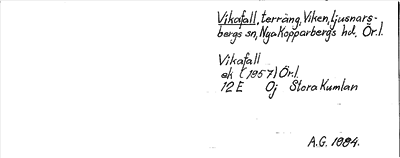 Vikafall, terräng, Viken, Ljusnars-
bergs sn, Nya Kopparbergs hd, Ör.l.
Vikafall
ek (1957) Ör.l.
12E Oj Stora Kumlan
A.G. 1984.